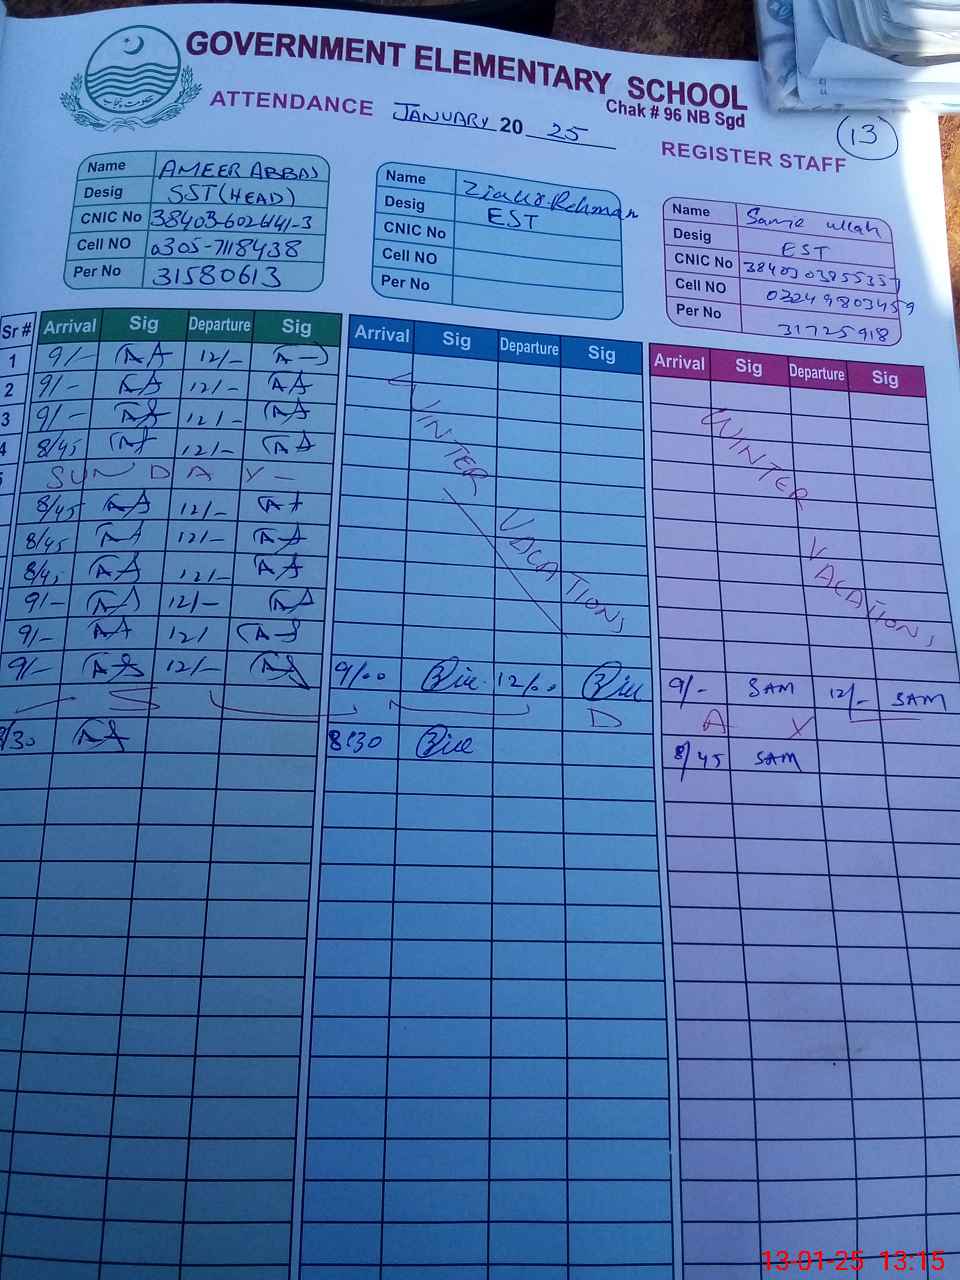 GOVERNMENT ELEMENTARY SCHOOL
Chak # 96 NB Sgd
ATTENDANCE JANUARY 20 25
REGISTER STAFF
13
حکومت پنجاب
Name AMEER ABBAS
Desig SST (HEAD)
CNIC No 38403-6026441-3
Cell NO 0305-7118438
Per No 31580613
Name Ziaur Rehman
Desig EST
CNIC No
Cell NO
Per No
Name Samie ullah
Desig EST
CNIC No 3840303855357
Cell NO 03249803459
Per No 31725918
Sr # Arrival Sig Departure Sig
1 9/- AA 12/- A
2 9/- AA 12/- AA
3 9/- AA 12/- AA
4 8/45 AA 12/- AA
SUNDAY -
8/45 AA 12/- AA
8/45 AA 12/- AA
8/45 AA 12/- AA
9/- AA 12/- AA
9/- AA 12/ AA
9/- AA 12/- AA
S U N
8/30 AA
Arrival Sig Departure Sig
WINTER
VACATIONS
9/00 12/00
D
8:30
Arrival Sig Departure Sig
WINTER
VACATIONS
9/- SAM 12/- SAM
A Y
8/45 SAM
13-01-25 13:15